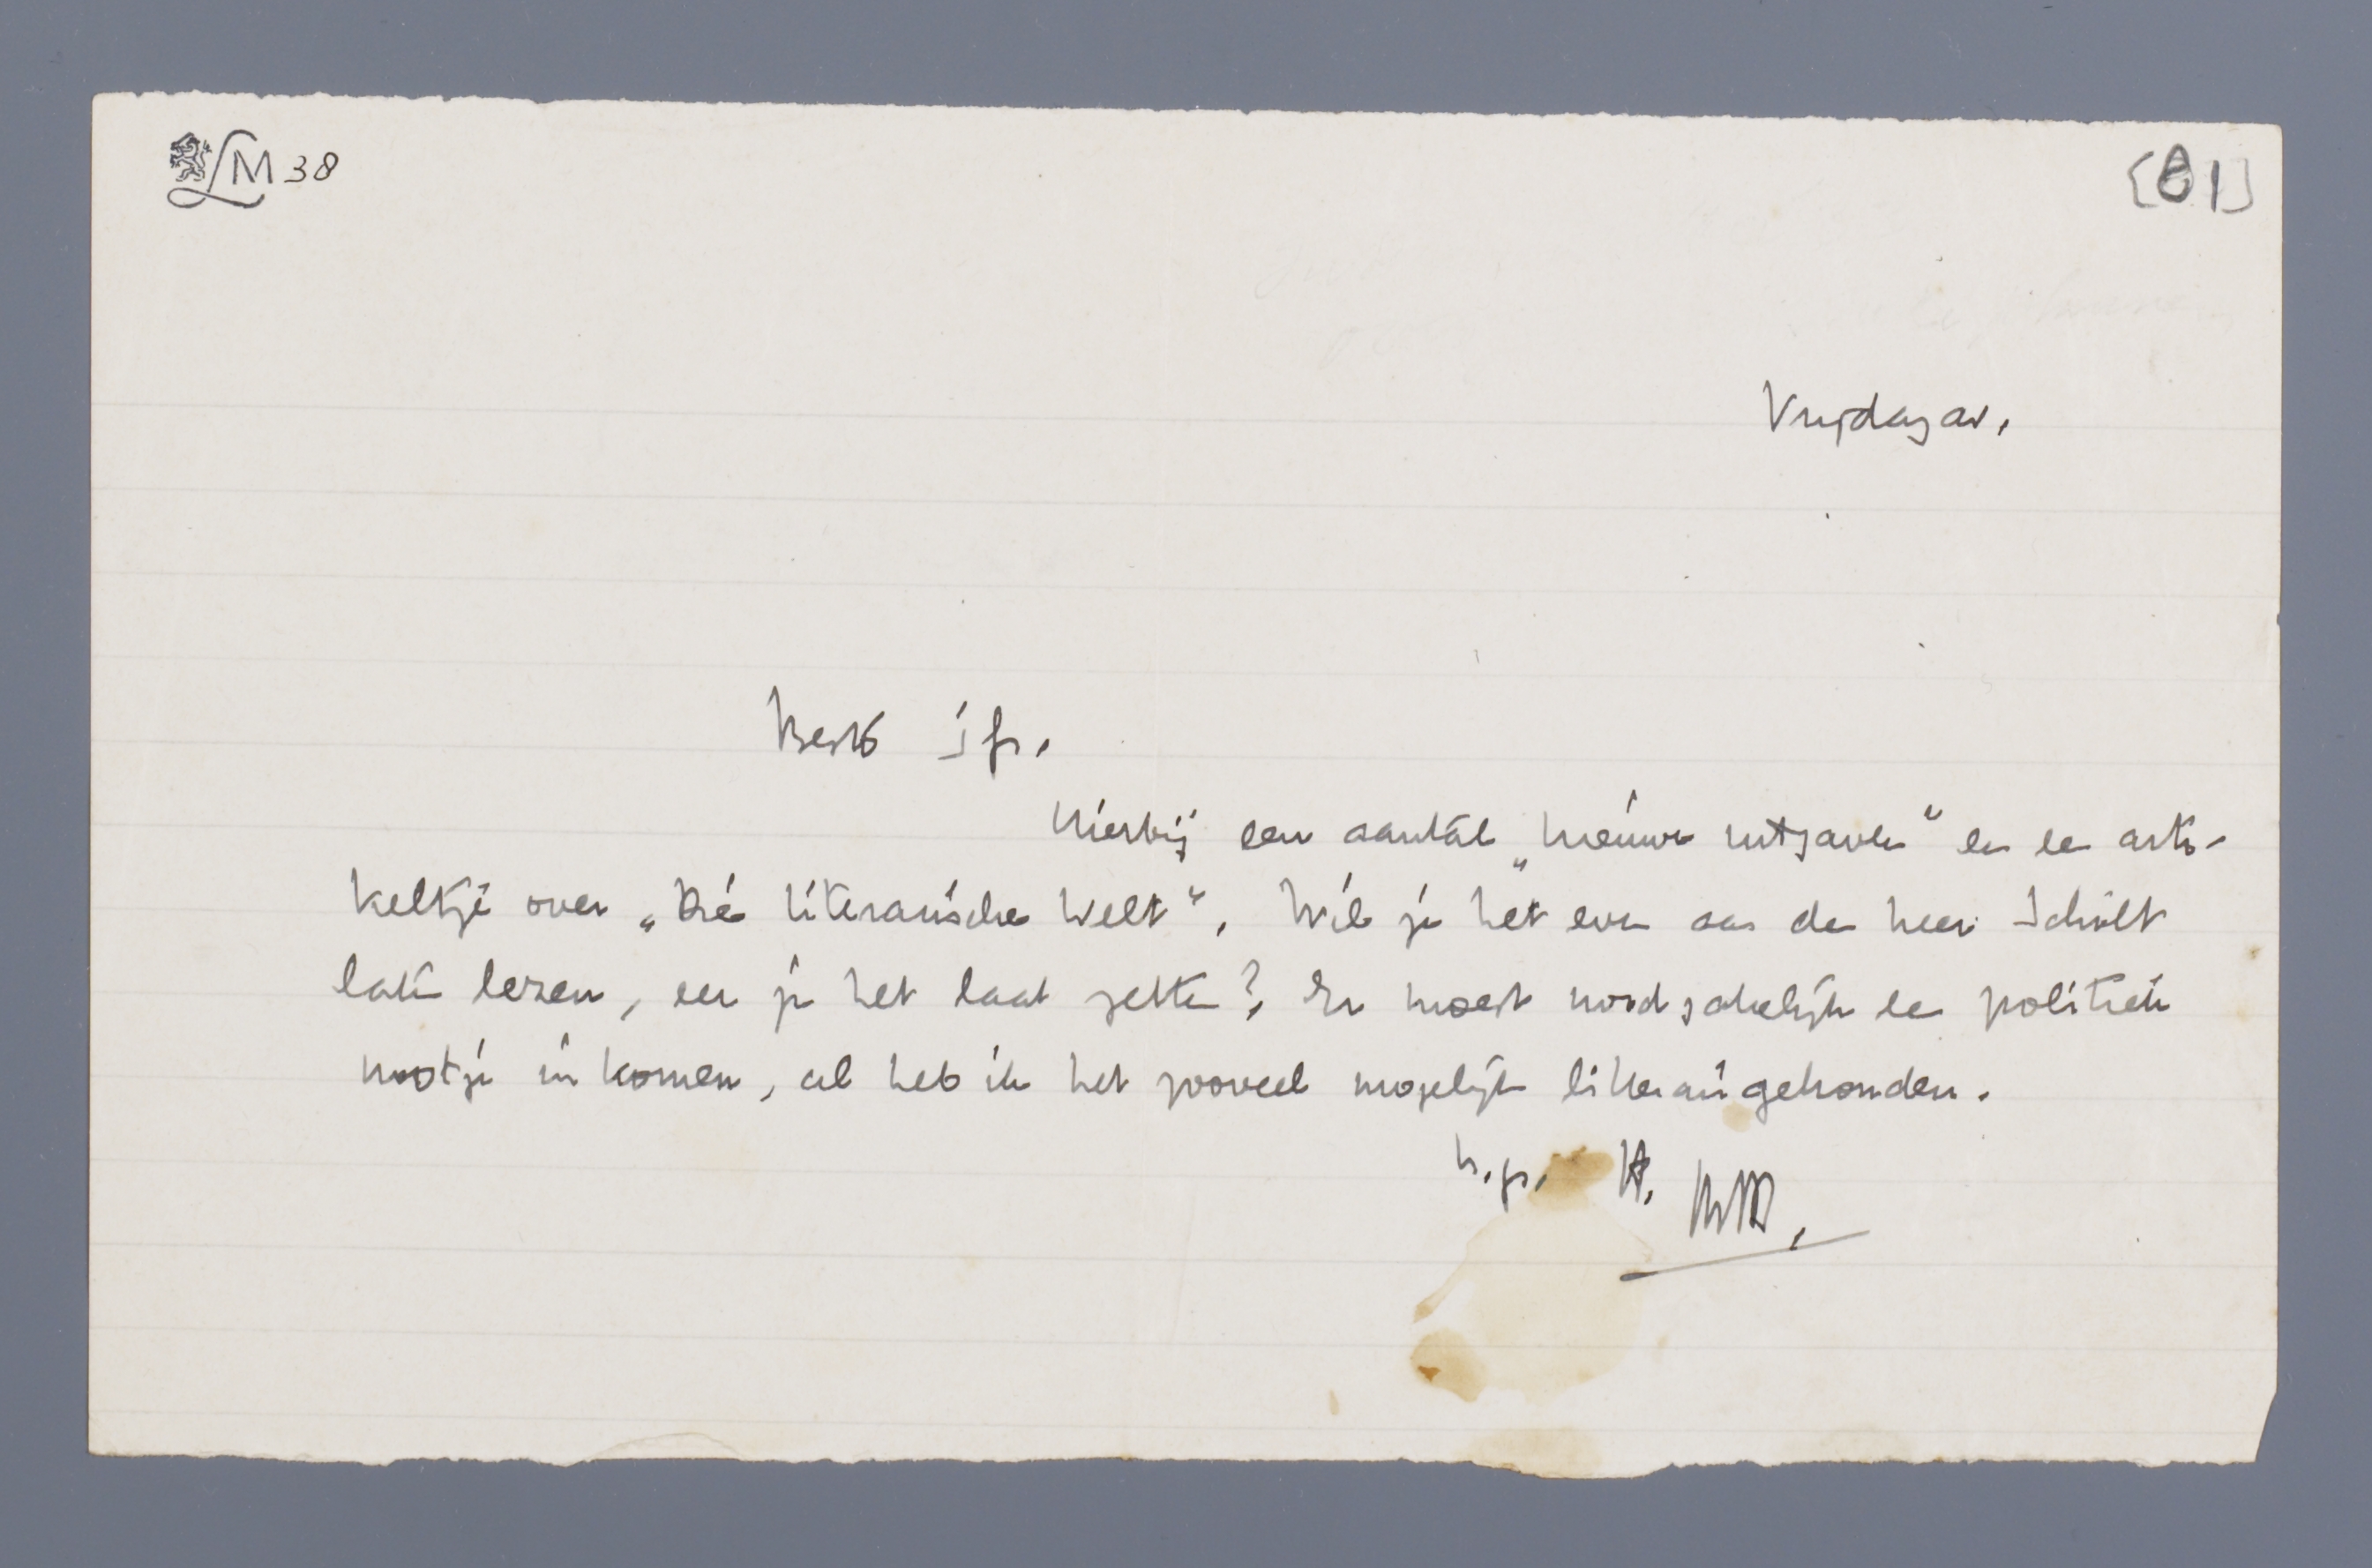 LM 38
[81]
Vrijdagav.
Beste
Hierbij een aantal „nieuwe uitgaven" en een arti-
keltje over „Die literarische Welt". Wil je het even aan den heer Schilt
laten lezen, eer je het laat zetten? Er moest noodzakelijk een politiek
nootje in komen, al heb ik het zooveel mogelijk litterair gehouden.
h.gr. H. M.